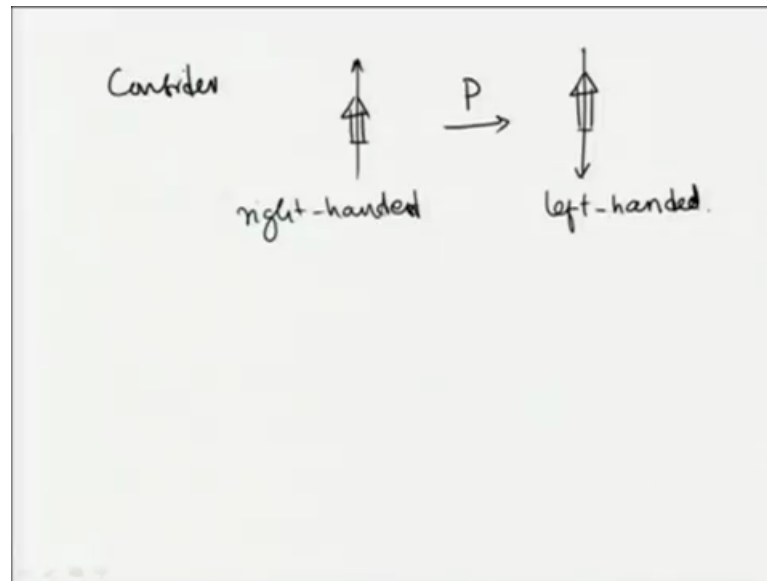 Consider P
right-handed left-handed.